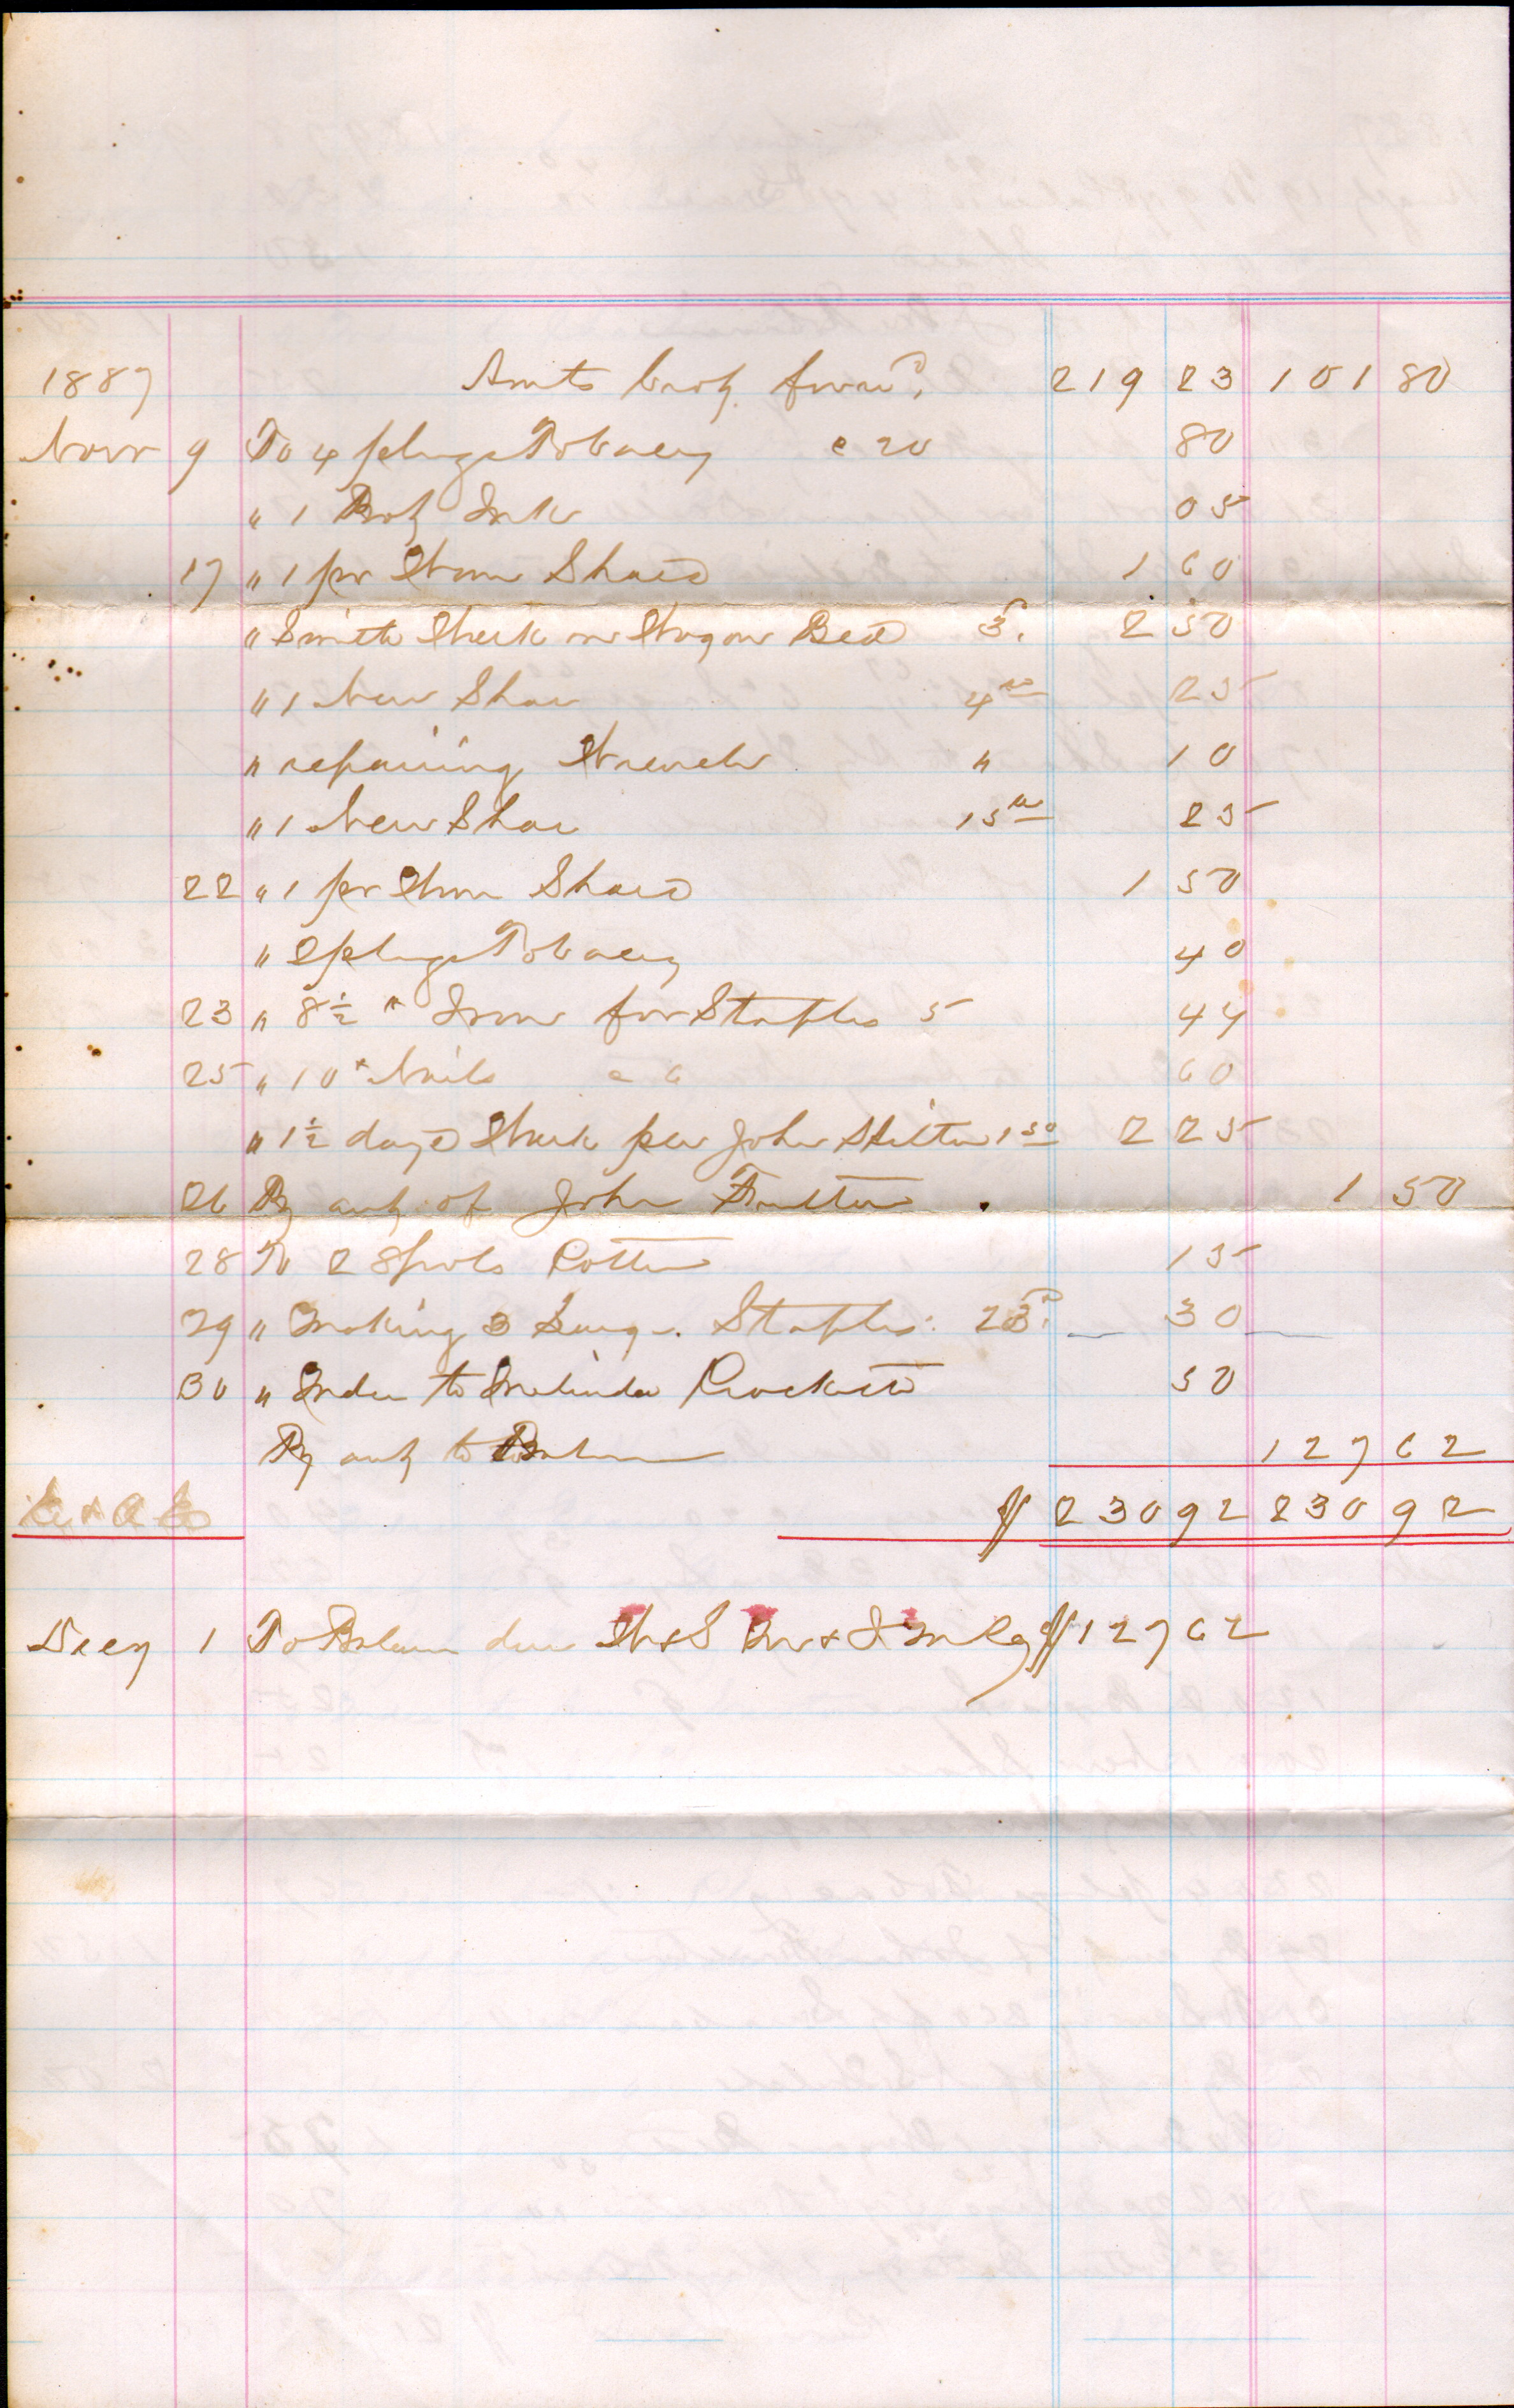 1887 Amts brot forwd. 219 23 101 80
Novr 9 To 4 plugs Tobacco @ 20 80
" 1 Bot Ink 05
17 " 1 pr Wom Shoes 1 60
" Smith Work on Wagon Bed 3d. 2 50
" 1 New Shoe 4th 25
" repairing Wrench " 10
" 1 New Shoe 15th 25
22 " 1 pr Wom Shoes 1 50
" 2 plugs Tobacco 40
23 " 8½ # Iron for Staples 5 44
25 " 10 # Nails @ 6 60
" 1½ days Work per John Hilton 1 50 2 25
26 By amt of John 1 50
28 To 2 Spools Cotton 15
29 " Making 3 Staples. 23d. 30
30 " Order to Malinda Crockett 50
By amt to Balance 127 62
$ 230 92 230 92
Decr 1 To Balance due $ 127 62